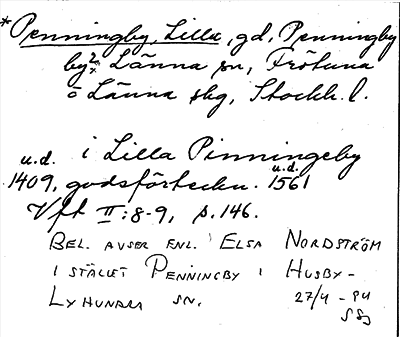 * Penningby, Lilla, gd, Penningby
by, Länna sn, Frötuna
o Länna skg, Stockh. l.
i Lilla Pinningeby
u.d. u.d.
1409, godsförteckn. 1561
Vft II:8-9, s. 146.
BEL. AVSER ENL. ELSA NORDSTRÖM
I STÄLLET PENNINGBY I HUSBY-
LYHUNDRA SN. 27/4 - 84